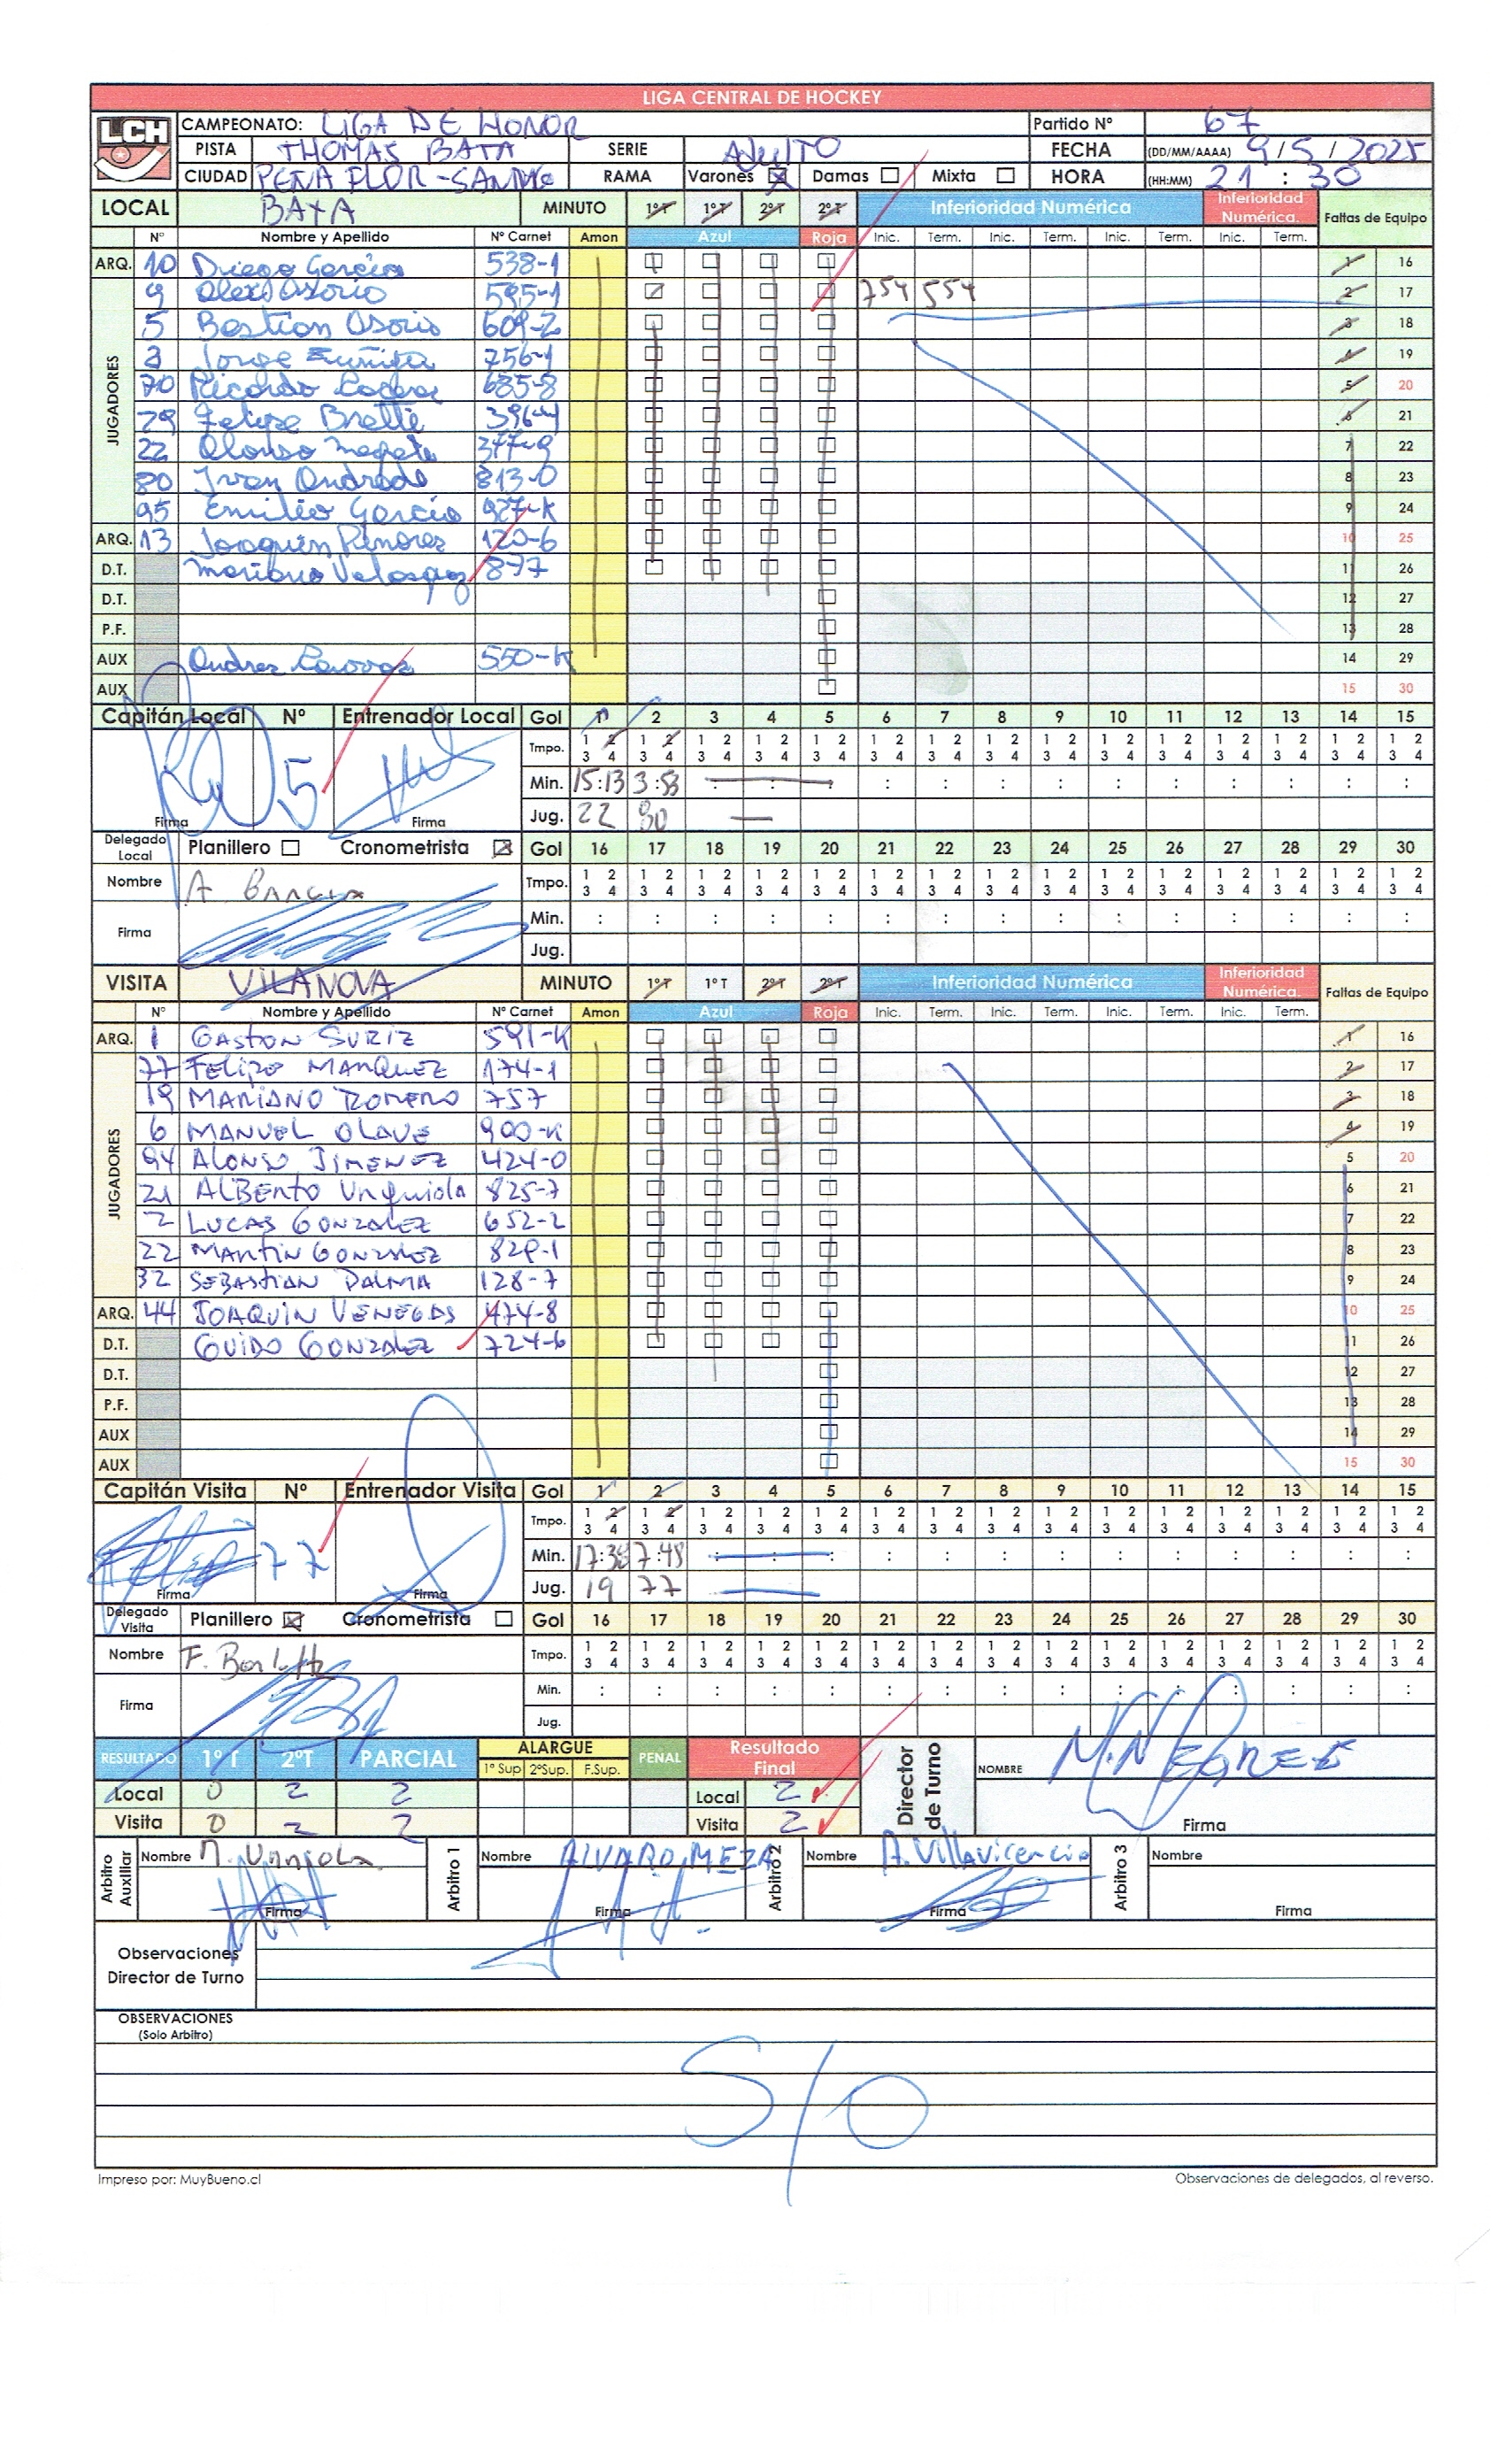 LIGA CENTRAL DE HOCKEY
LCH CAMPEONATO: LIGA DE HONOR Partido Nº 67
PISTA THOMAS BATA SERIE ADULTO FECHA (DD/MM/AAAA) 9/5/2025
CIUDAD PEÑAFLOR - RAMA Varones ☒ Damas ☐ Mixta ☐ HORA (HH:MM) 21:30
LOCAL BATA MINUTO 1ºT 1ºT 2ºT 2ºT Inferioridad Numérica Inferioridad Numérica. Faltas de Equipo
Nº Nombre y Apellido Nº Carnet Amon Azul Roja Inic. Term. Inic. Term. Inic. Term. Inic. Term.
ARQ. 10 Diego García 538-1 1 16
JUGADORES
9 Alexi Osorio 595-1 754 554 2 17
5 Bastian Osorio 609-2 3 18
3 Jorge Zuñiga 756-1 4 19
70 Ricardo 685-8 5 20
79 Felipe Brette 396-4 6 21
22 Alonso 377-9 7 22
80 Ivan Andrade 813-0 8 23
95 Emilio García 927-K 9 24
ARQ. 13 Joaquin 120-6 10 25
D.T. Mariano Velasquez 877 11 26
D.T. 12 27
P.F. 13 28
AUX Andres 550-K 14 29
AUX 15 30
Capitán Local Nº Entrenador Local Gol 1 2 3 4 5 6 7 8 9 10 11 12 13 14 15
Tmpo. 1 2 1 2 1 2 1 2 1 2 1 2 1 2 1 2 1 2 1 2 1 2 1 2 1 2 1 2 1 2
3 4 3 4 3 4 3 4 3 4 3 4 3 4 3 4 3 4 3 4 3 4 3 4 3 4 3 4 3 4
5 Min. 15:13 3:53 : : : : : : : : : : : : :
Firma Firma Jug. 22 80
Delegado Local Planillero ☐ Cronometrista ☒ Gol 16 17 18 19 20 21 22 23 24 25 26 27 28 29 30
Nombre A Tmpo. 1 2 1 2 1 2 1 2 1 2 1 2 1 2 1 2 1 2 1 2 1 2 1 2 1 2 1 2 1 2
3 4 3 4 3 4 3 4 3 4 3 4 3 4 3 4 3 4 3 4 3 4 3 4 3 4 3 4 3 4
Firma Min. : : : : : : : : : : : : : : :
Jug.
VISITA VILANOVA MINUTO 1ºT 1ºT 2ºT 2ºT Inferioridad Numérica Inferioridad Numérica. Faltas de Equipo
Nº Nombre y Apellido Nº Carnet Amon Azul Roja Inic. Term. Inic. Term. Inic. Term. Inic. Term.
ARQ. 1 GASTON SURIZ 591-K 1 16
JUGADORES
77 FELIPE MARQUEZ 174-1 2 17
19 MARIANO ROMERO 757 3 18
6 MANUEL OLAVE 900-K 4 19
94 ALONSO JIMENEZ 424-0 5 20
21 ALBERTO Urquiola 825-7 6 21
2 LUCAS GONZALEZ 652-2 7 22
22 MARTIN GONZALEZ 829-1 8 23
32 SEBASTIAN PALMA 128-7 9 24
ARQ. 44 JOAQUIN VENEGAS 474-8 10 25
D.T. GUIDO GONZALEZ 724-6 11 26
D.T. 12 27
P.F. 13 28
AUX 14 29
AUX 15 30
Capitán Visita Nº Entrenador Visita Gol 1 2 3 4 5 6 7 8 9 10 11 12 13 14 15
Tmpo. 1 2 1 2 1 2 1 2 1 2 1 2 1 2 1 2 1 2 1 2 1 2 1 2 1 2 1 2 1 2
3 4 3 4 3 4 3 4 3 4 3 4 3 4 3 4 3 4 3 4 3 4 3 4 3 4 3 4 3 4
77 Min. 17:38 7:48 : : : : : : : : : : : : :
Firma Firma Jug. 19 77
Delegado Visita Planillero ☒ Cronometrista ☐ Gol 16 17 18 19 20 21 22 23 24 25 26 27 28 29 30
Nombre F. Tmpo. 1 2 1 2 1 2 1 2 1 2 1 2 1 2 1 2 1 2 1 2 1 2 1 2 1 2 1 2 1 2
3 4 3 4 3 4 3 4 3 4 3 4 3 4 3 4 3 4 3 4 3 4 3 4 3 4 3 4 3 4
Firma Min. : : : : : : : : : : : : : : :
Jug.
RESULTADO 1ºT 2ºT PARCIAL ALARGUE PENAL Resultado Final Director de Turno NOMBRE
1ª Sup 2ºSup. F.Sup.
Local 0 2 2 Local 2
Visita 0 2 2 Visita 2 Firma
Arbitro Auxiliar Nombre Arbitro 1 Nombre ALVARO MEZA Arbitro 2 Nombre A. Villavicencio Arbitro 3 Nombre
Firma Firma Firma Firma
Observaciones
Director de Turno
OBSERVACIONES
(Solo Arbitro)
S/O
Impreso por: MuyBueno.cl Observaciones de delegados, al reverso.